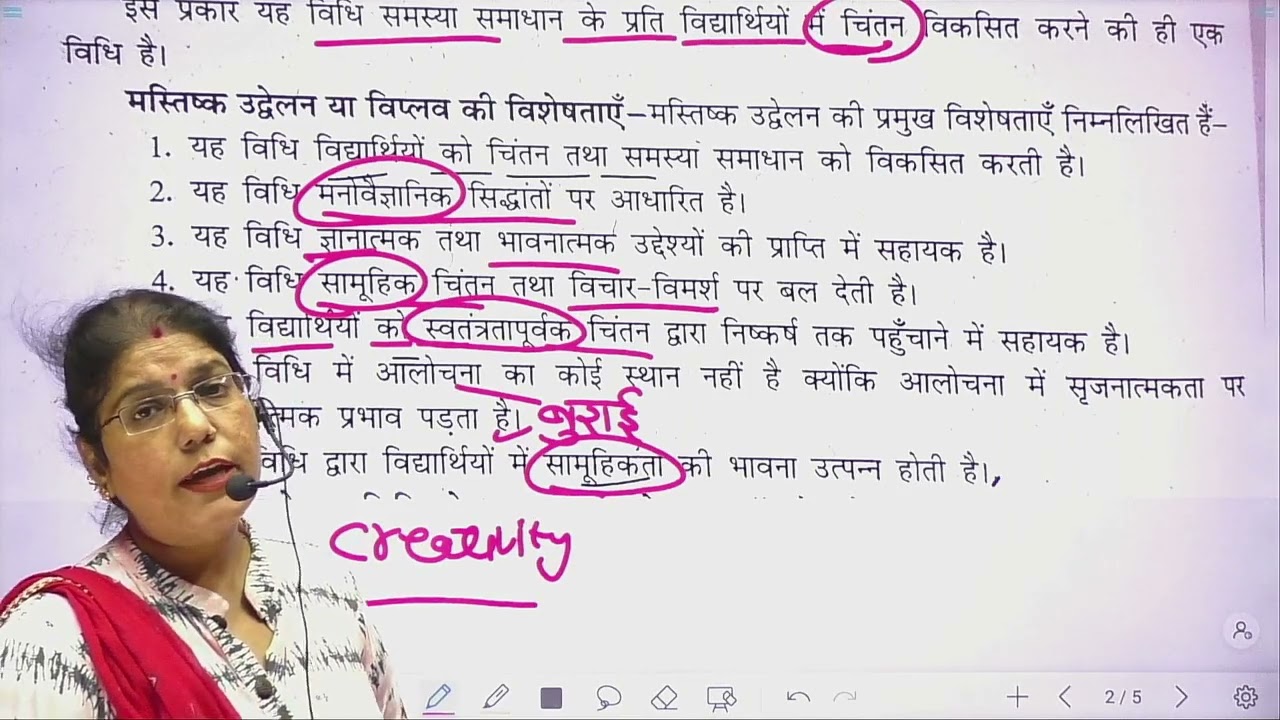 इस प्रकार यह विधि समस्या समाधान के प्रति विद्यार्थियों में चिंतन विकसित करने की ही एक
विधि है।
मस्तिष्क उद्वेलन या विप्लव की विशेषताएँ–मस्तिष्क उद्वेलन की प्रमुख विशेषताएँ निम्नलिखित हैं–
1. यह विधि विद्यार्थियों को चिंतन तथा समस्या समाधान को विकसित करती है।
2. यह विधि मनोवैज्ञानिक सिद्धांतों पर आधारित है।
3. यह विधि ज्ञानात्मक तथा भावनात्मक उद्देश्यों की प्राप्ति में सहायक है।
4. यह विधि सामूहिक चिंतन तथा विचार-विमर्श पर बल देती है।
विद्यार्थियों को स्वतंत्रतापूर्वक चिंतन द्वारा निष्कर्ष तक पहुँचाने में सहायक है।
विधि में आलोचना का कोई स्थान नहीं है क्योंकि आलोचना में सृजनात्मकता पर
त्मक प्रभाव पड़ता है। बुराई
विधि द्वारा विद्यार्थियों में सामूहिकता की भावना उत्पन्न होती है।
creativity
2/5